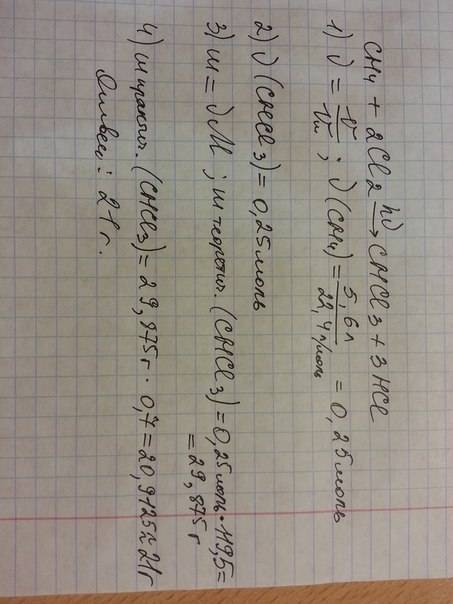 CH4 + 2Cl2 hν→ CHCl3 + 3HCl
1) ν = V/Vm ; ν(CH4) = 5,6л/22,4л/моль = 0,25моль
2) ν(CHCl3) = 0,25моль
3) m = νM ; m теоретич. (CHCl3) = 0,25моль · 119,5 =
= 29,875г
4) m практич. (CHCl3) = 29,875г · 0,7 = 20,9125≈21г
Ответ: 21г.